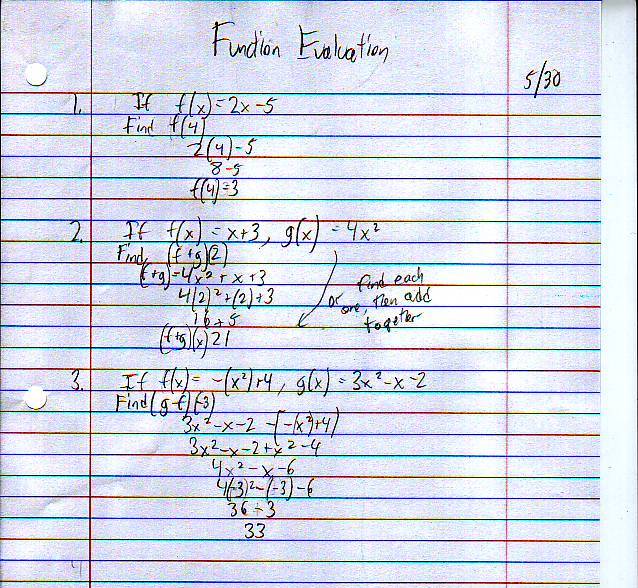 Function Evaluation
5/30
1. If f(x)=2x-5
Find f(4)
2(4)-5
8-5
f(4)=3
2. If f(x) = x+3, g(x) = 4x²
Find (f+g)(2)
(f+g)=4x²+x+3
4(2)²+(2)+3
16+5
(f+g)(x) 21
or find each
one, then add
together
3. If f(x)= -(x²)+4, g(x) = 3x²-x-2
Find (g-f)(-3)
3x²-x-2 -(-(x²)+4)
3x²-x-2+x²-4
4x²-x-6
4(-3)²-(-3)-6
36-3
33